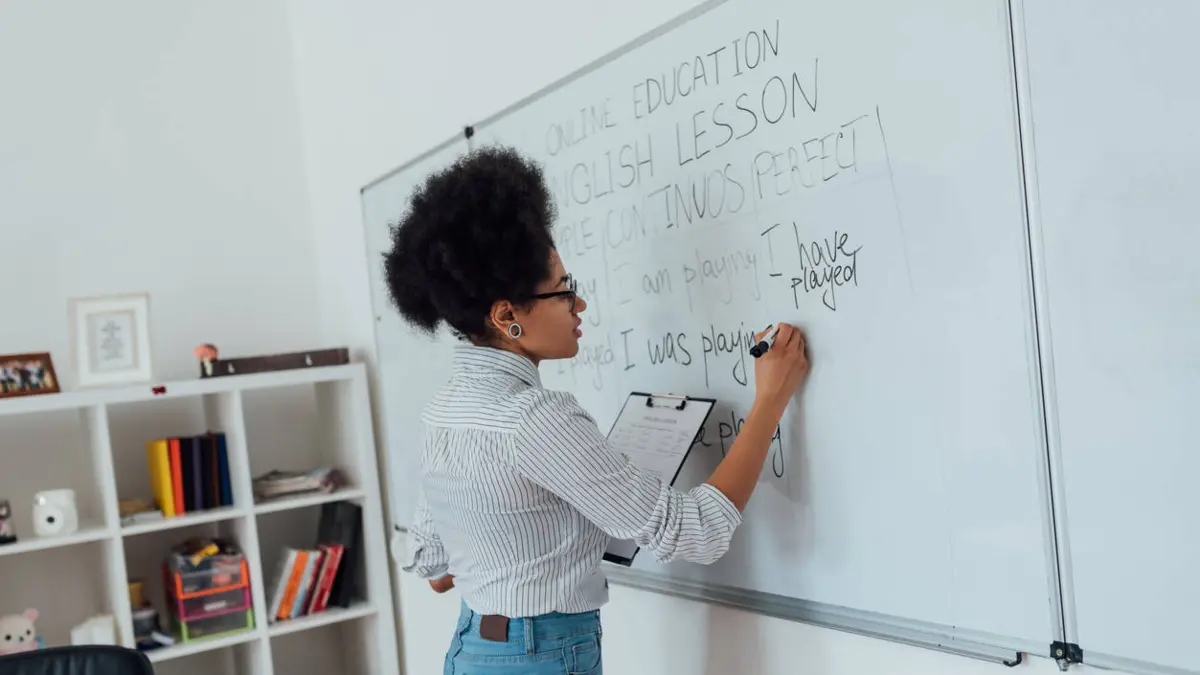 ONLINE EDUCATION
NGLISH LESSON
PLE CONTINUOS PERFECT
ay I am playing I have
played
played I was playing
e playing